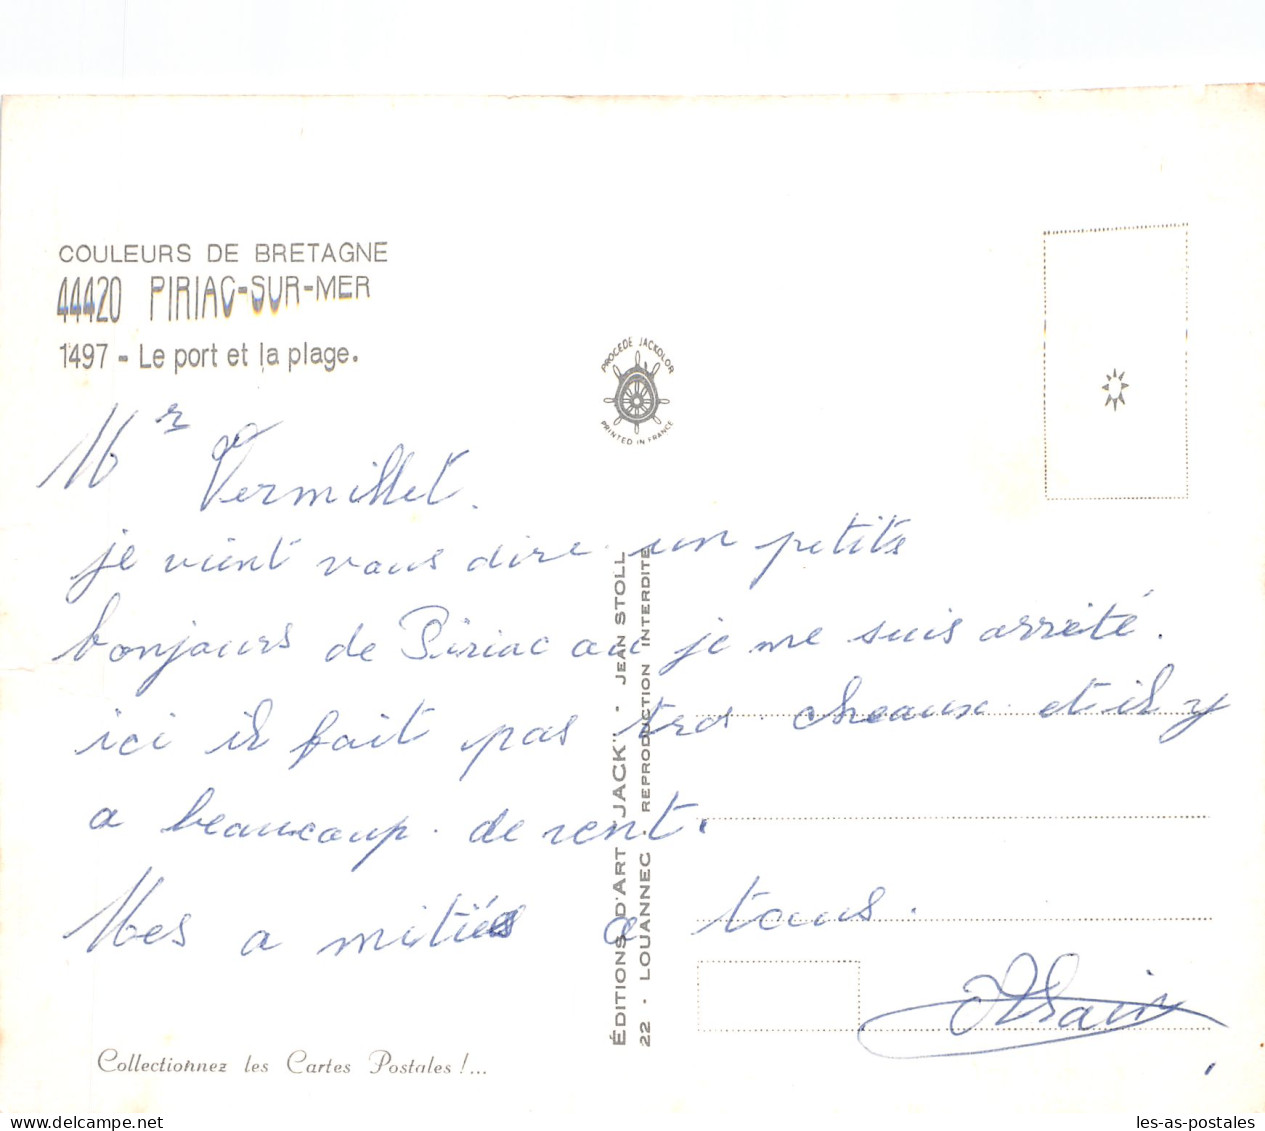 COULEURS DE BRETAGNE
44420 PIRIAC-SUR-MER
1497 - Le port et la plage.
PROCEDE JACKOLOR
PRINTED IN FRANCE
Mr Vermillet.
je vient vous dire un petits
bonjours de Piriac ou je me suis arrèté.
ici il fait pas tros cheaux et il y
a beaucoup de vent.
Mes a mitiés a tous.
Alain
ÉDITIONS D'ART "JACK" - JEAN STOLL
22 - LOUANNEC - REPRODUCTION INTERDITE
Collectionnez les Cartes Postales !...
les-as-postales